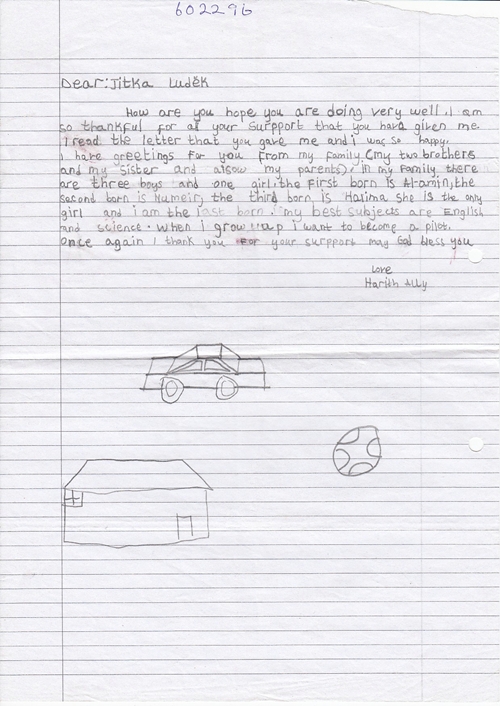 602296
Dear: Jitka Luděk
How are you hope you are doing very well. i am
so thankful for all your surpport that you have given me.
I read the letter that you gave me and i was so happy.
i have greetings for you from my family, (my two brothers
and my sister and alsow my parents). in my family there
are three boys and one girl. the first born is Al-amin, the
second born is Numeir, the third born is Halima she is the only
girl and i am the last born. my best subjects are English
and science. when i grow up i want to become a pilot.
Once again I thank you for your surpport may God bless you
Love
Harith Ally